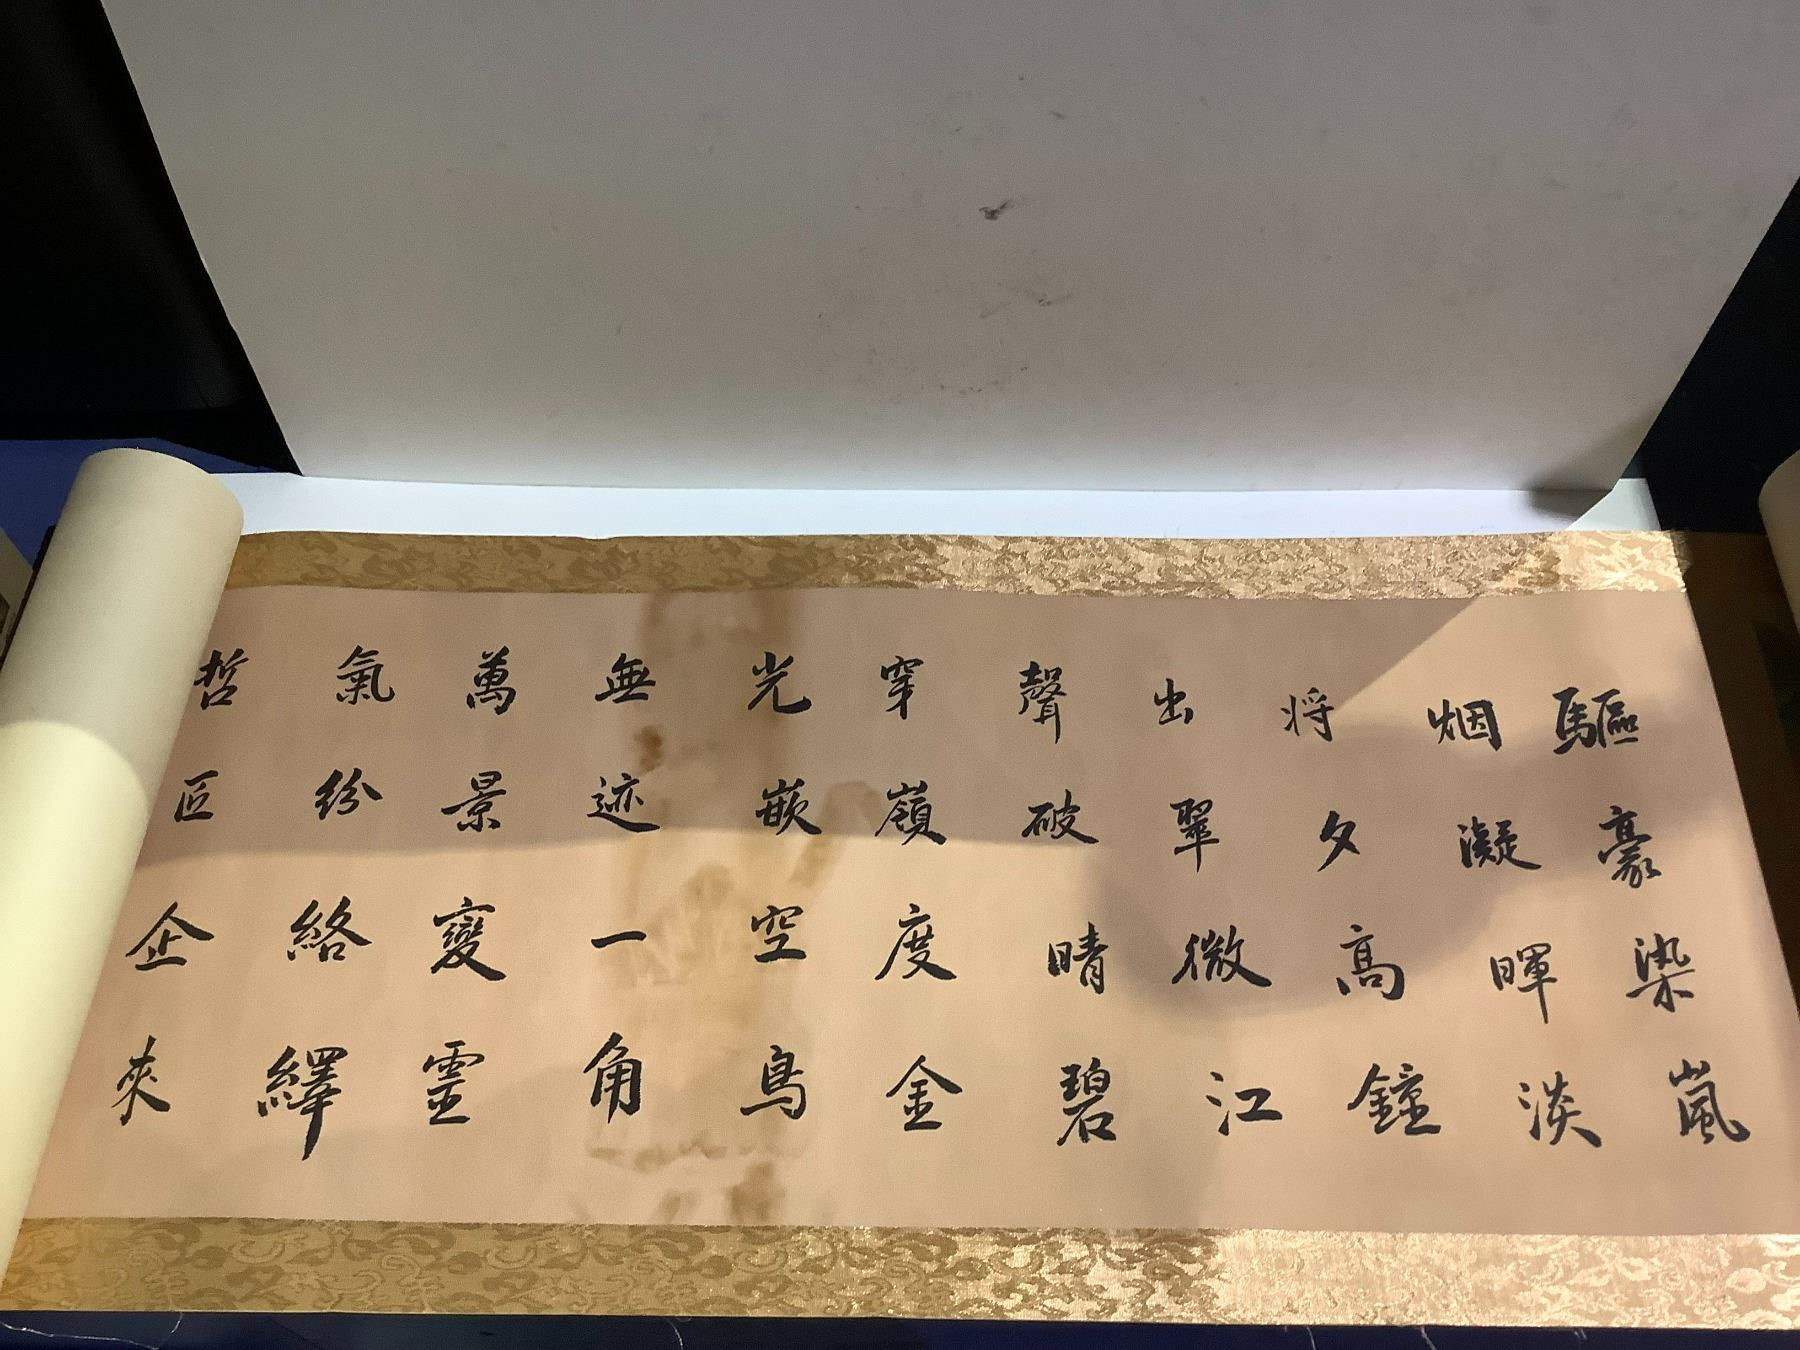 驅豪染嵐
烟凝暉淡
将夕高鐘
出翠微江
聲破晴碧
穿嶺度金
光嵌空鳥
無迹一角
萬景變靈
氣紛絡繹
哲匠企來